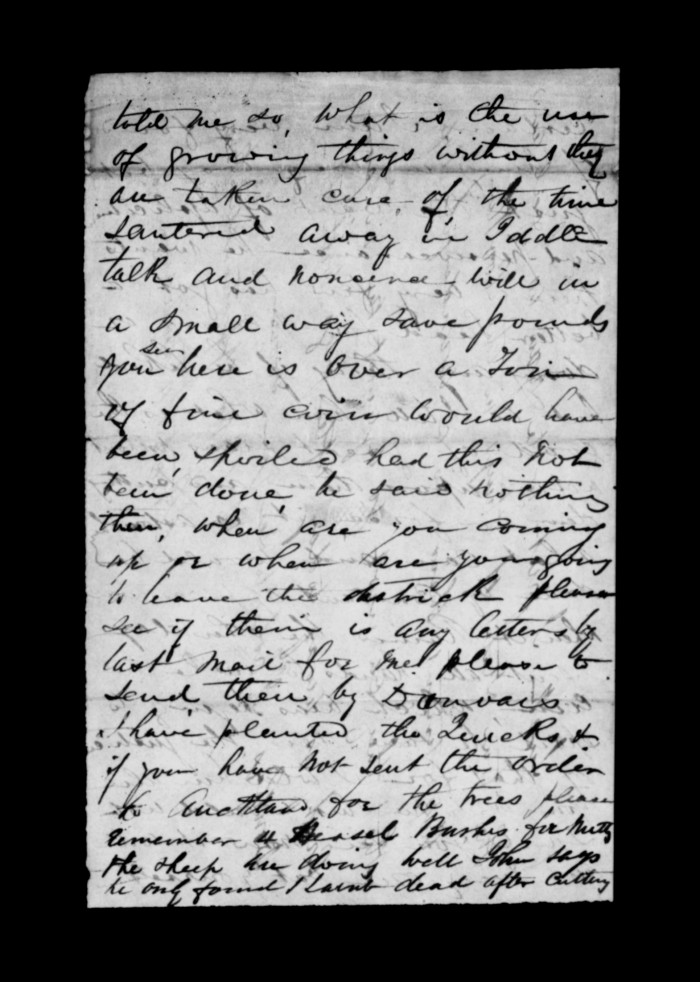 told me so, what is the use
of growing things without they
are taken care of, the time
santered away in Iddle
talk and nonsence will in
a small way save pounds
you see here is over a Ton
of fine corn would have
been spoiled had this not
been done, he said nothing
then, when are you coming
up or when are you going
to leave the district please
see if their is any letters by
last mail for me please to
send them by
I have planted the Quicks &
if you have not sent the order
to Auckland for the trees please
remember 4 Heasel Bushes for Nutts
the sheep are doing well John says
he only found 1 Lamb dead after Cutting